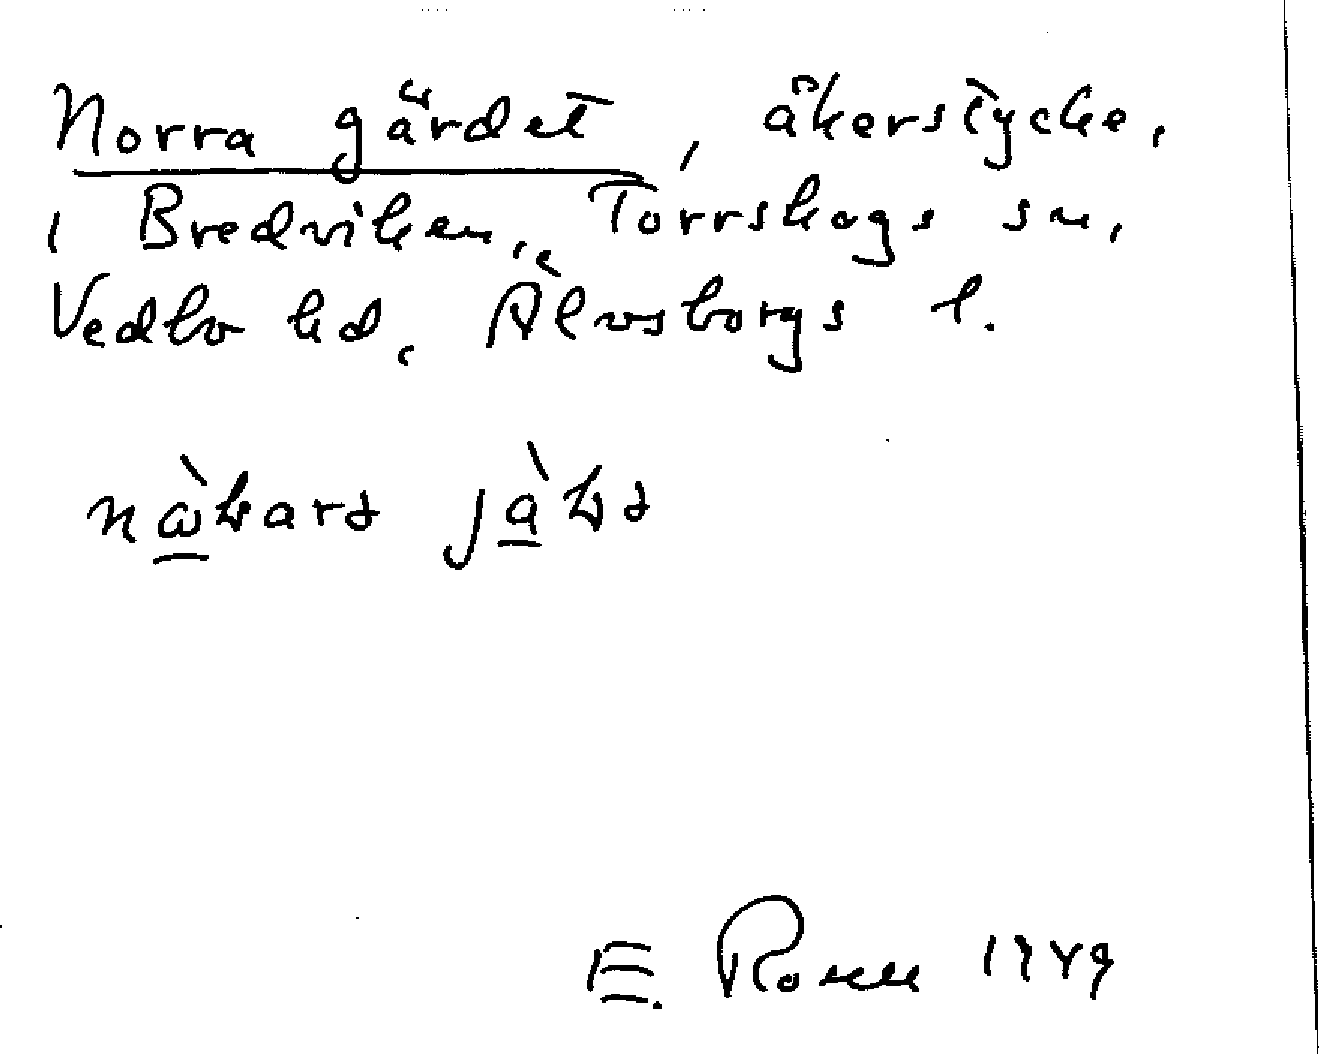 Norra gärdet, åkerstycke,
i Bredviken, Torrskogs sn,
Vedbo hd, Älvsborgs l.
E. Rosell 1949